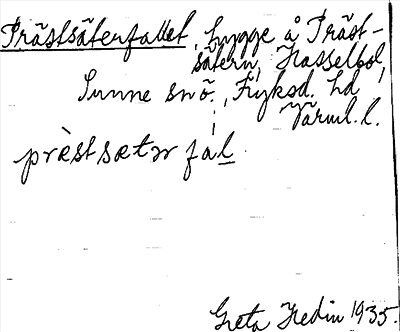 Prästsäterfallet, bygge å Präst-
sätern, Hasselbol,
Sunne sn ö., Fryksd. hd,
Värml. l.
prèstsætər fal
Greta Hedin 1935.